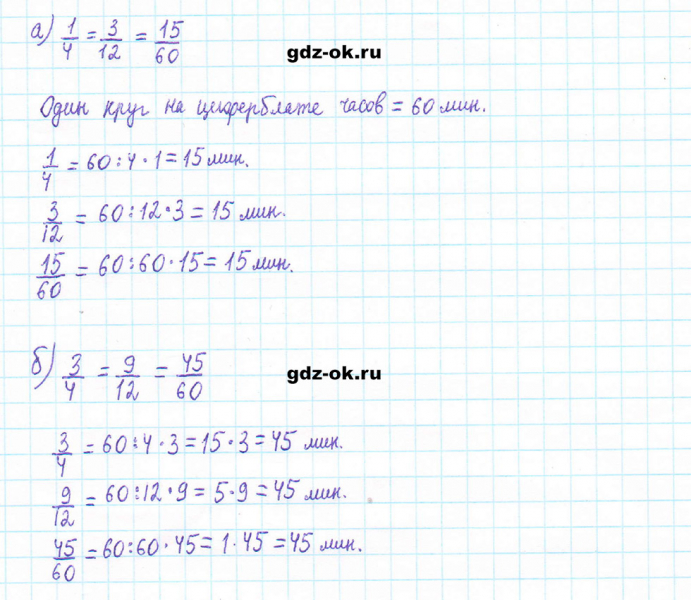 а) 1/4 = 3/12 = 15/60
gdz-ok.ru
Один круг на циферблате часов = 60 мин.
1/4 = 60 : 4 · 1 = 15 мин.
3/12 = 60 : 12 · 3 = 15 мин.
15/60 = 60 : 60 · 15 = 15 мин.
б) 3/4 = 9/12 = 45/60
gdz-ok.ru
3/4 = 60 : 4 · 3 = 15 · 3 = 45 мин.
9/12 = 60 : 12 · 9 = 5 · 9 = 45 мин.
45/60 = 60 : 60 · 45 = 1 · 45 = 45 мин.